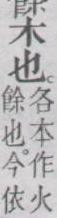 餘木也。
各本作火
餘也。今依